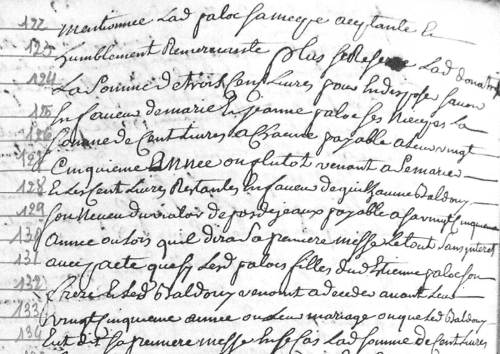 122 mentionnee Lad paloc sa niepce acceptante Et
123 humblement Remerciante plus se Reserve Lad donatr
124 La Somme de trois Cens Livres pour En disposer savoir
125 En faveur de marie Et Jeanne paloc ses Niepces La
126 Somme de Cent Livres a Chacune payable a Leur vingt
127 Cinquieme Année ou plutot venant a Se marier
128 Et Les Cent Livres Restantes En faveur de guilhaume Baldouy
129 Son Neveu du de payable a sa vingt cinquieme
130 Annee ou Lors quil dira Sa premiere messe Le tout sans interet
131 avec pacte que sy Lesd paloc filles dud Etienne paloc son
132 frere Et Led Baldouy venoit a deceder avant Leur
133 vingt cinquieme annee ou Leur mariage ou que Led Baldouy
134 eut dit Sa premiere messe En ce Cas Lad Somme de Cent Livres